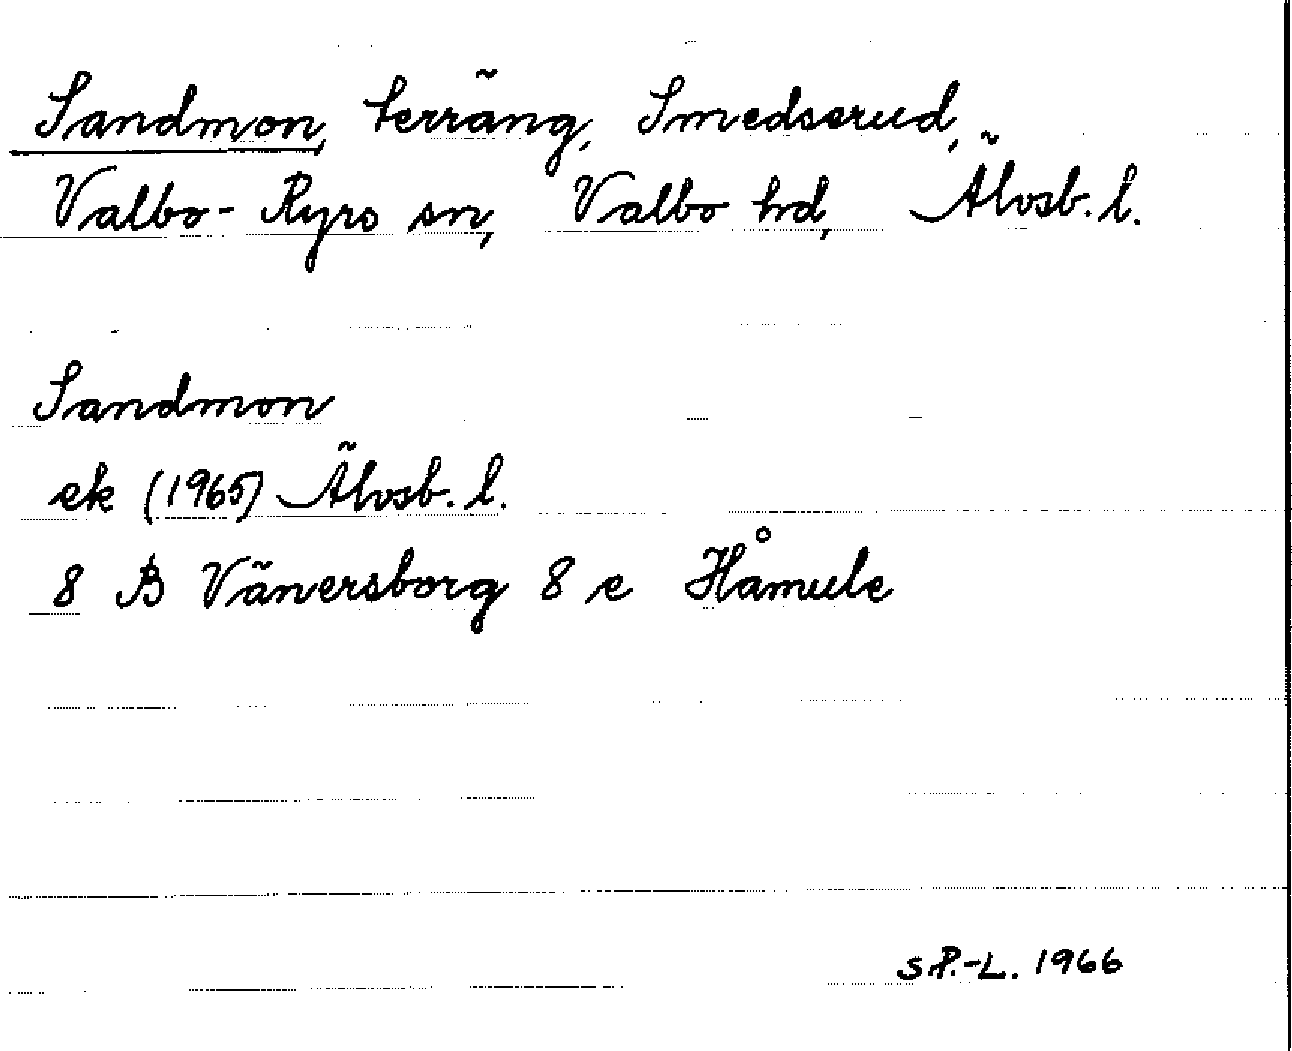 Sandmon, terräng, Smedserud,
Valbo-Ryrs sn, Valbo hd, Älvsb. l.
Sandmon
ek (1965) Älvsb. l.
8 B Vänersborg 8 e Håmule
S P.-L. 1966